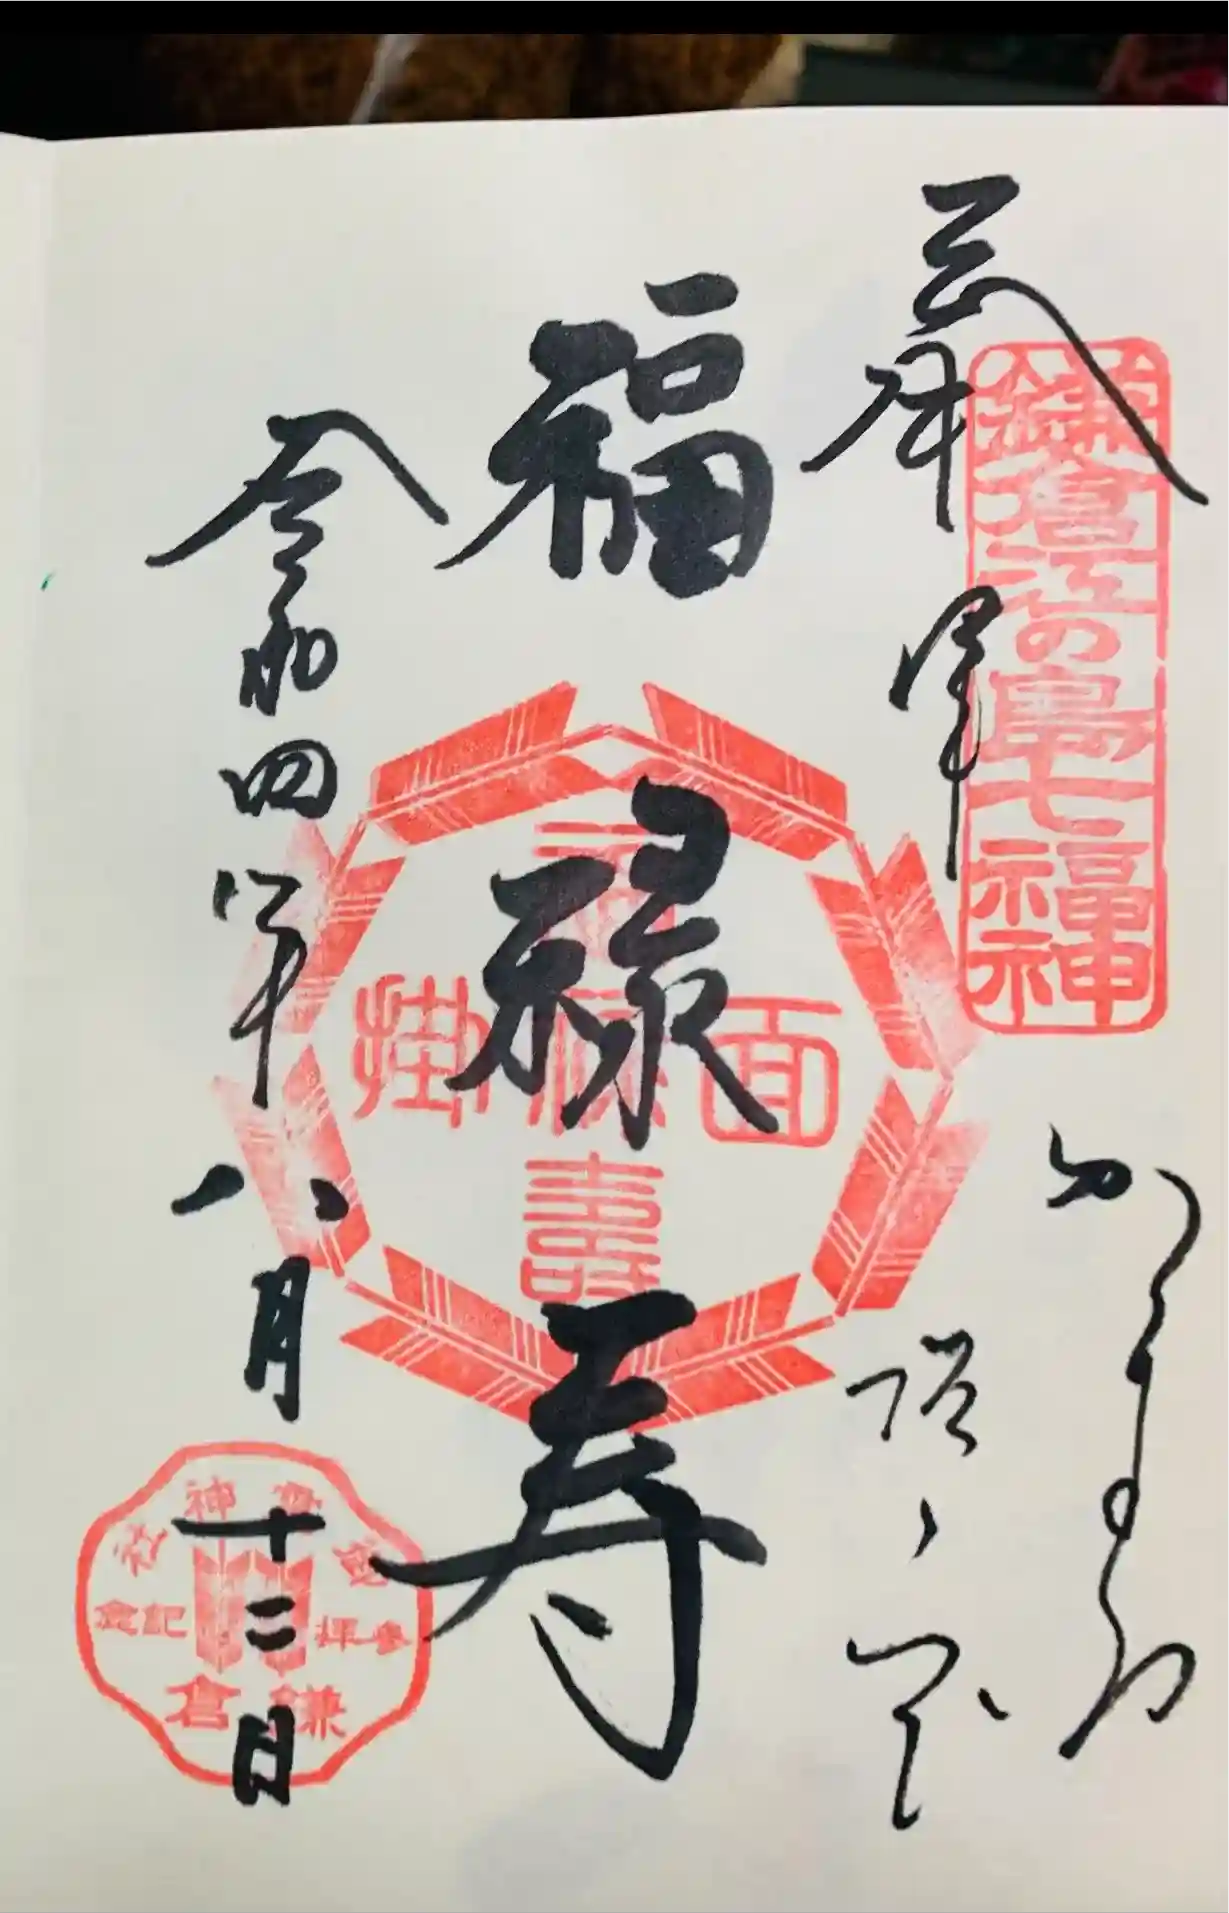 奉拝
鎌倉江の島七福神
福禄寿
福禄寿
面掛
令和四年八月十二日
御霊神社
参拝記念
鎌倉